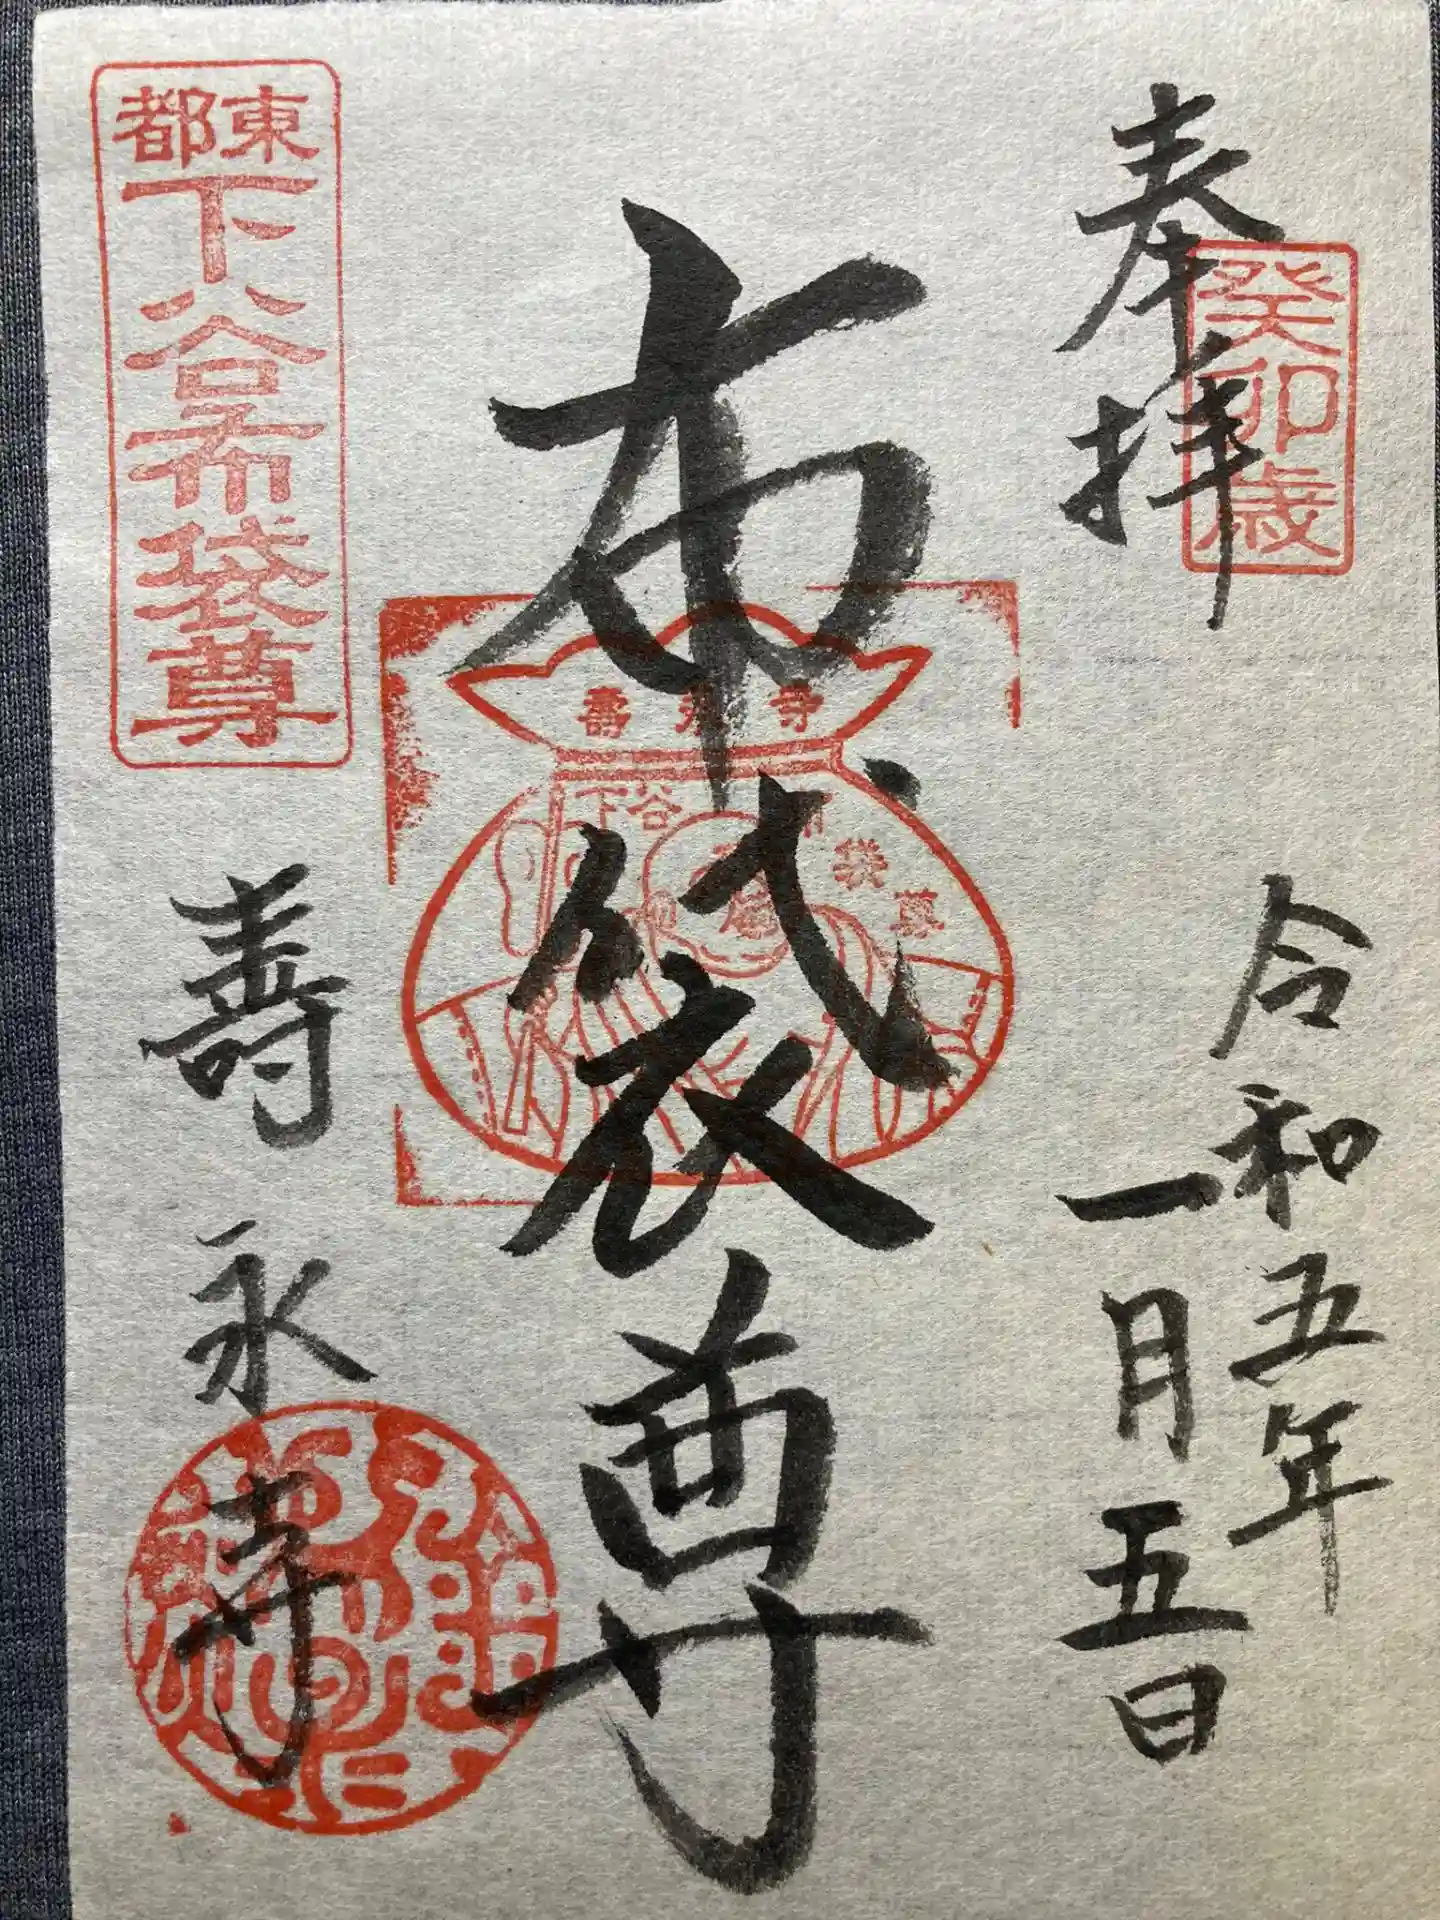 奉拝
癸卯歳
令和五年
一月五日
布袋尊
壽永寺
下谷布袋尊
東都
下谷布袋尊
壽永寺